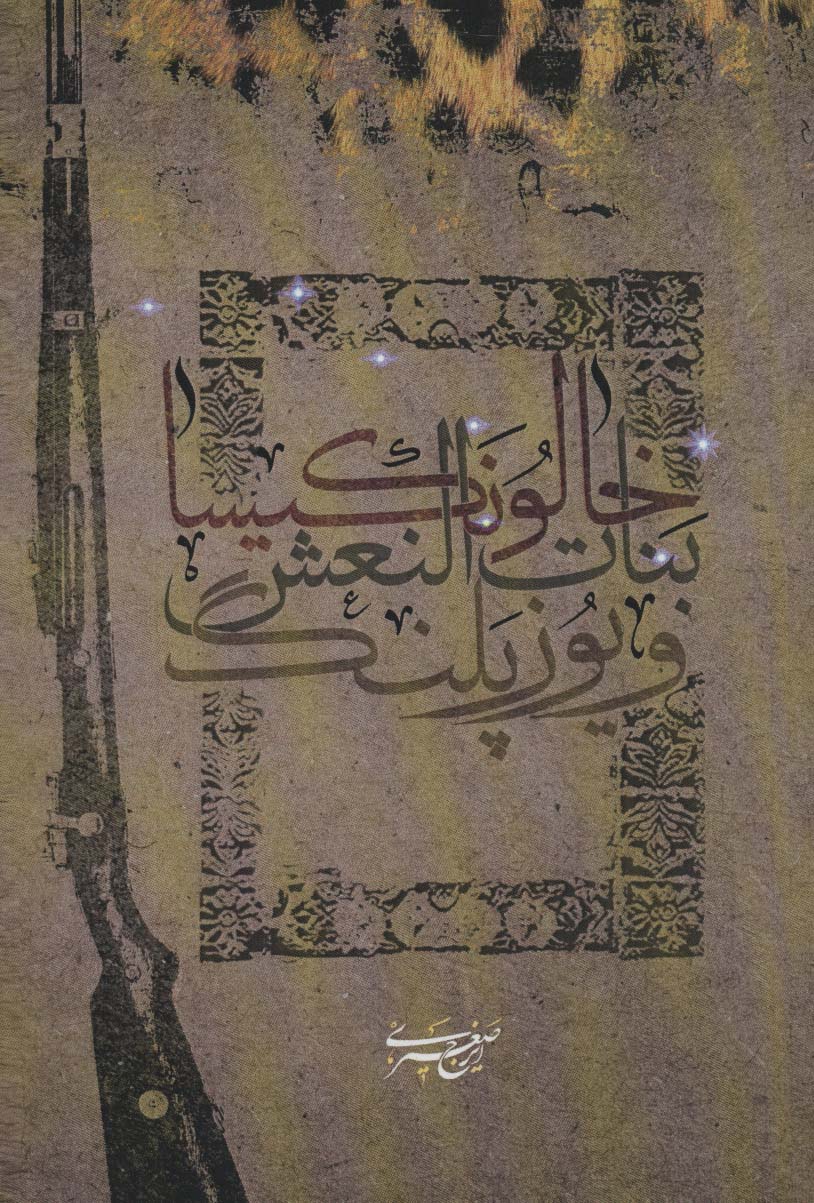 خالو نکیسا
بنات النعش
و یوزپلنگ
ایرج صغیری